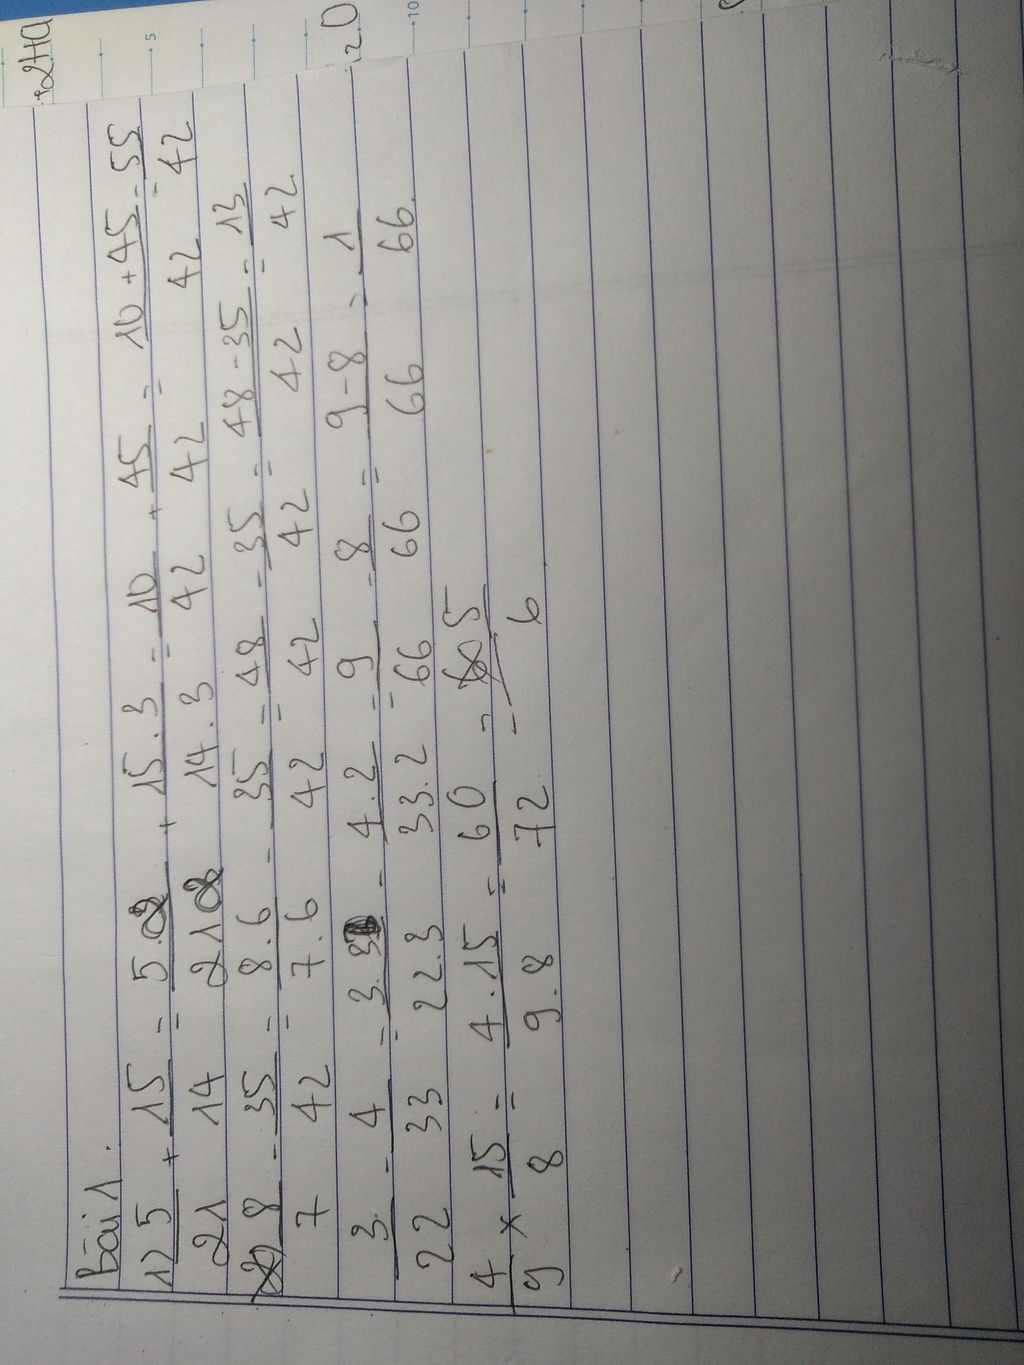 Bài 1.
1) 5/21 + 15/14 = 5.2/21.2 + 15.3/14.3 = 10/42 + 45/42 = 10+45/42 = 55/42
2) 8/7 - 35/42 = 8.6/7.6 - 35/42 = 48/42 - 35/42 = 48-35/42 = 13/42
3/22 - 4/33 = 3.3/22.3 - 4.2/33.2 = 9/66 - 8/66 = 9-8/66 = 1/66
4/9 x 15/8 = 4.15/9.8 = 60/72 = 5/6